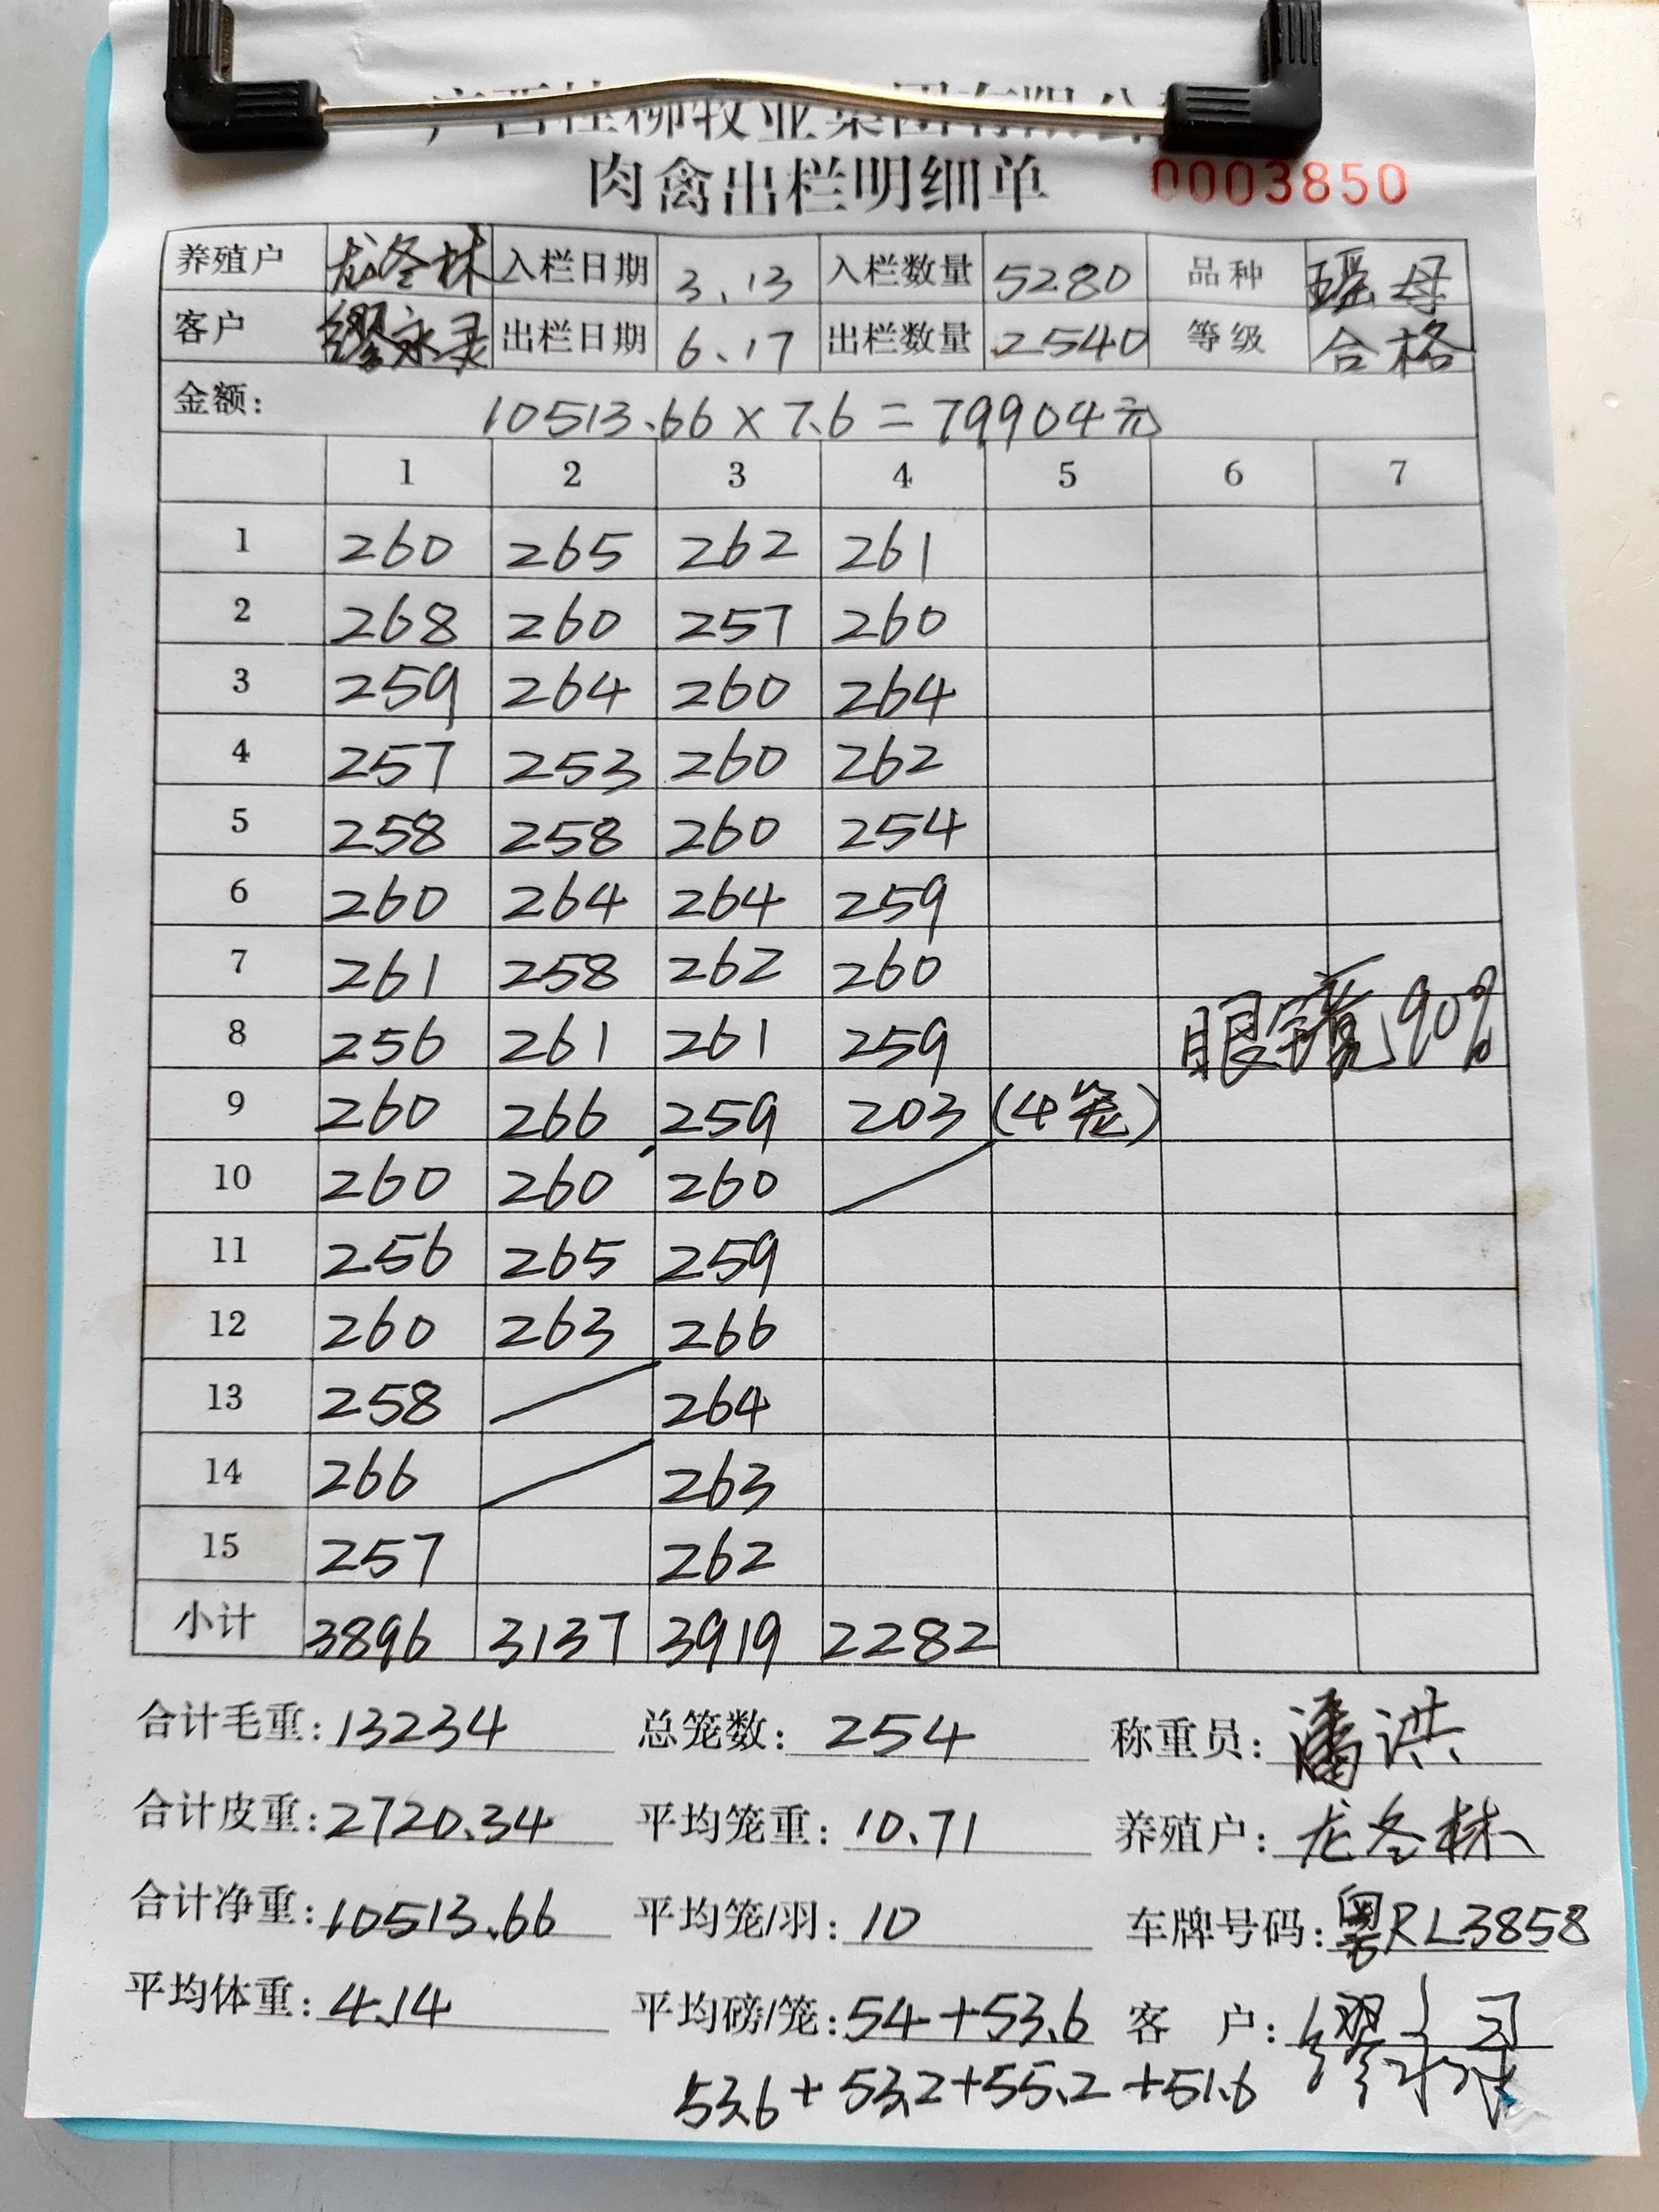 广西桂柳牧业集团有限公
肉禽出栏明细单 0003850
养殖户 龙冬林 入栏日期 3.13 入栏数量 5280 品种 瑶母
客户 缪永录 出栏日期 6.17 出栏数量 2540 等级 合格
金额: 10513.66×7.6=79904元
1 2 3 4 5 6 7
1 260 265 262 261
2 268 260 257 260
3 259 264 260 264
4 257 253 260 262
5 258 258 260 254
6 260 264 264 259
7 261 258 262 260
8 256 261 261 259 眼镜90%
9 260 266 259 203 (4笼)
10 260 260 260
11 256 265 259
12 260 263 266
13 258 264
14 266 263
15 257 262
小计 3896 3137 3919 2282
合计毛重: 13234 总笼数: 254 称重员: 潘洪
合计皮重: 2720.34 平均笼重: 10.71 养殖户: 龙冬林
合计净重: 10513.66 平均笼/羽: 10 车牌号码: 粤RL3858
平均体重: 4.14 平均磅/笼: 54+53.6 客 户:
53.6+53.2+55.2+51.6